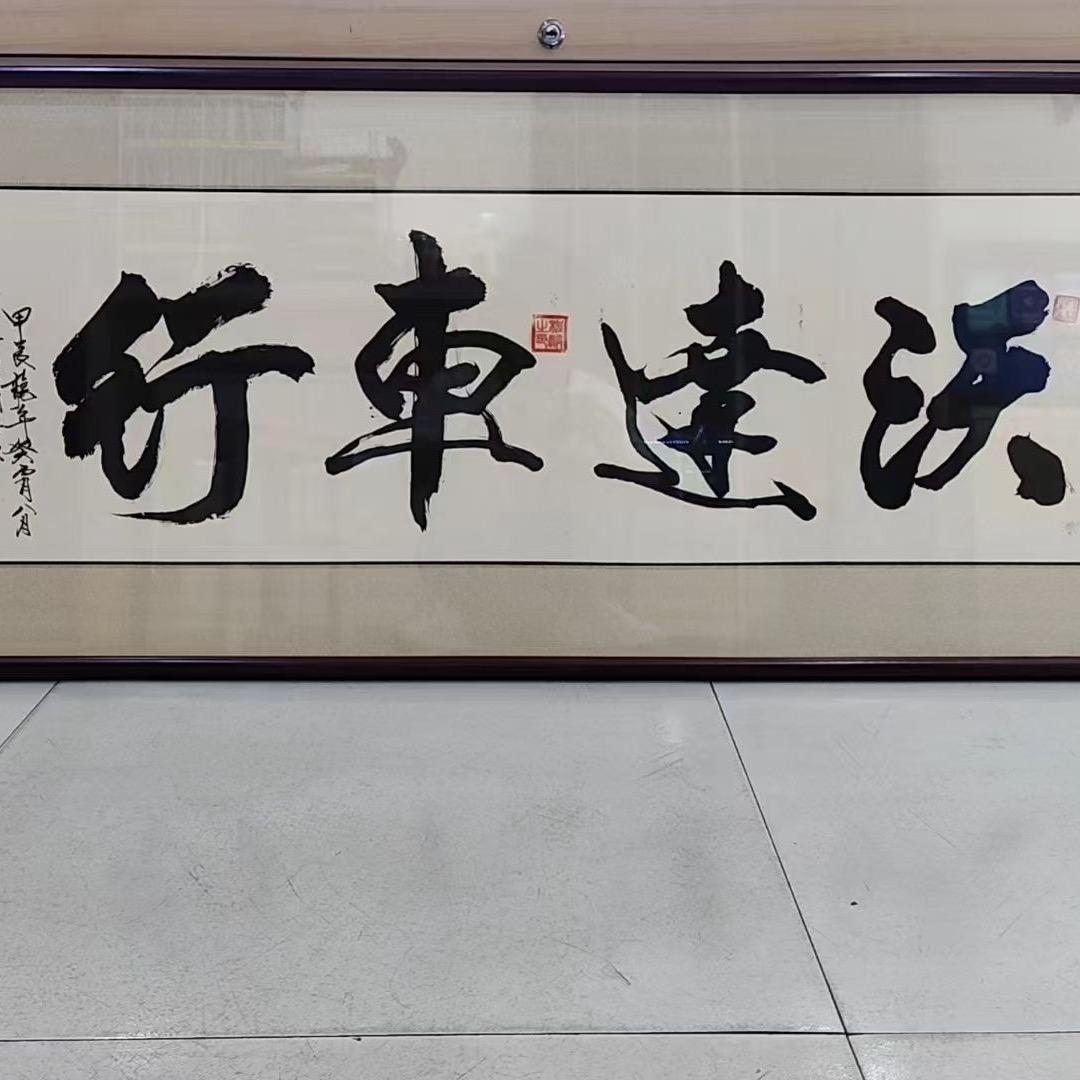 沃達車行
甲辰龍年癸宵八月